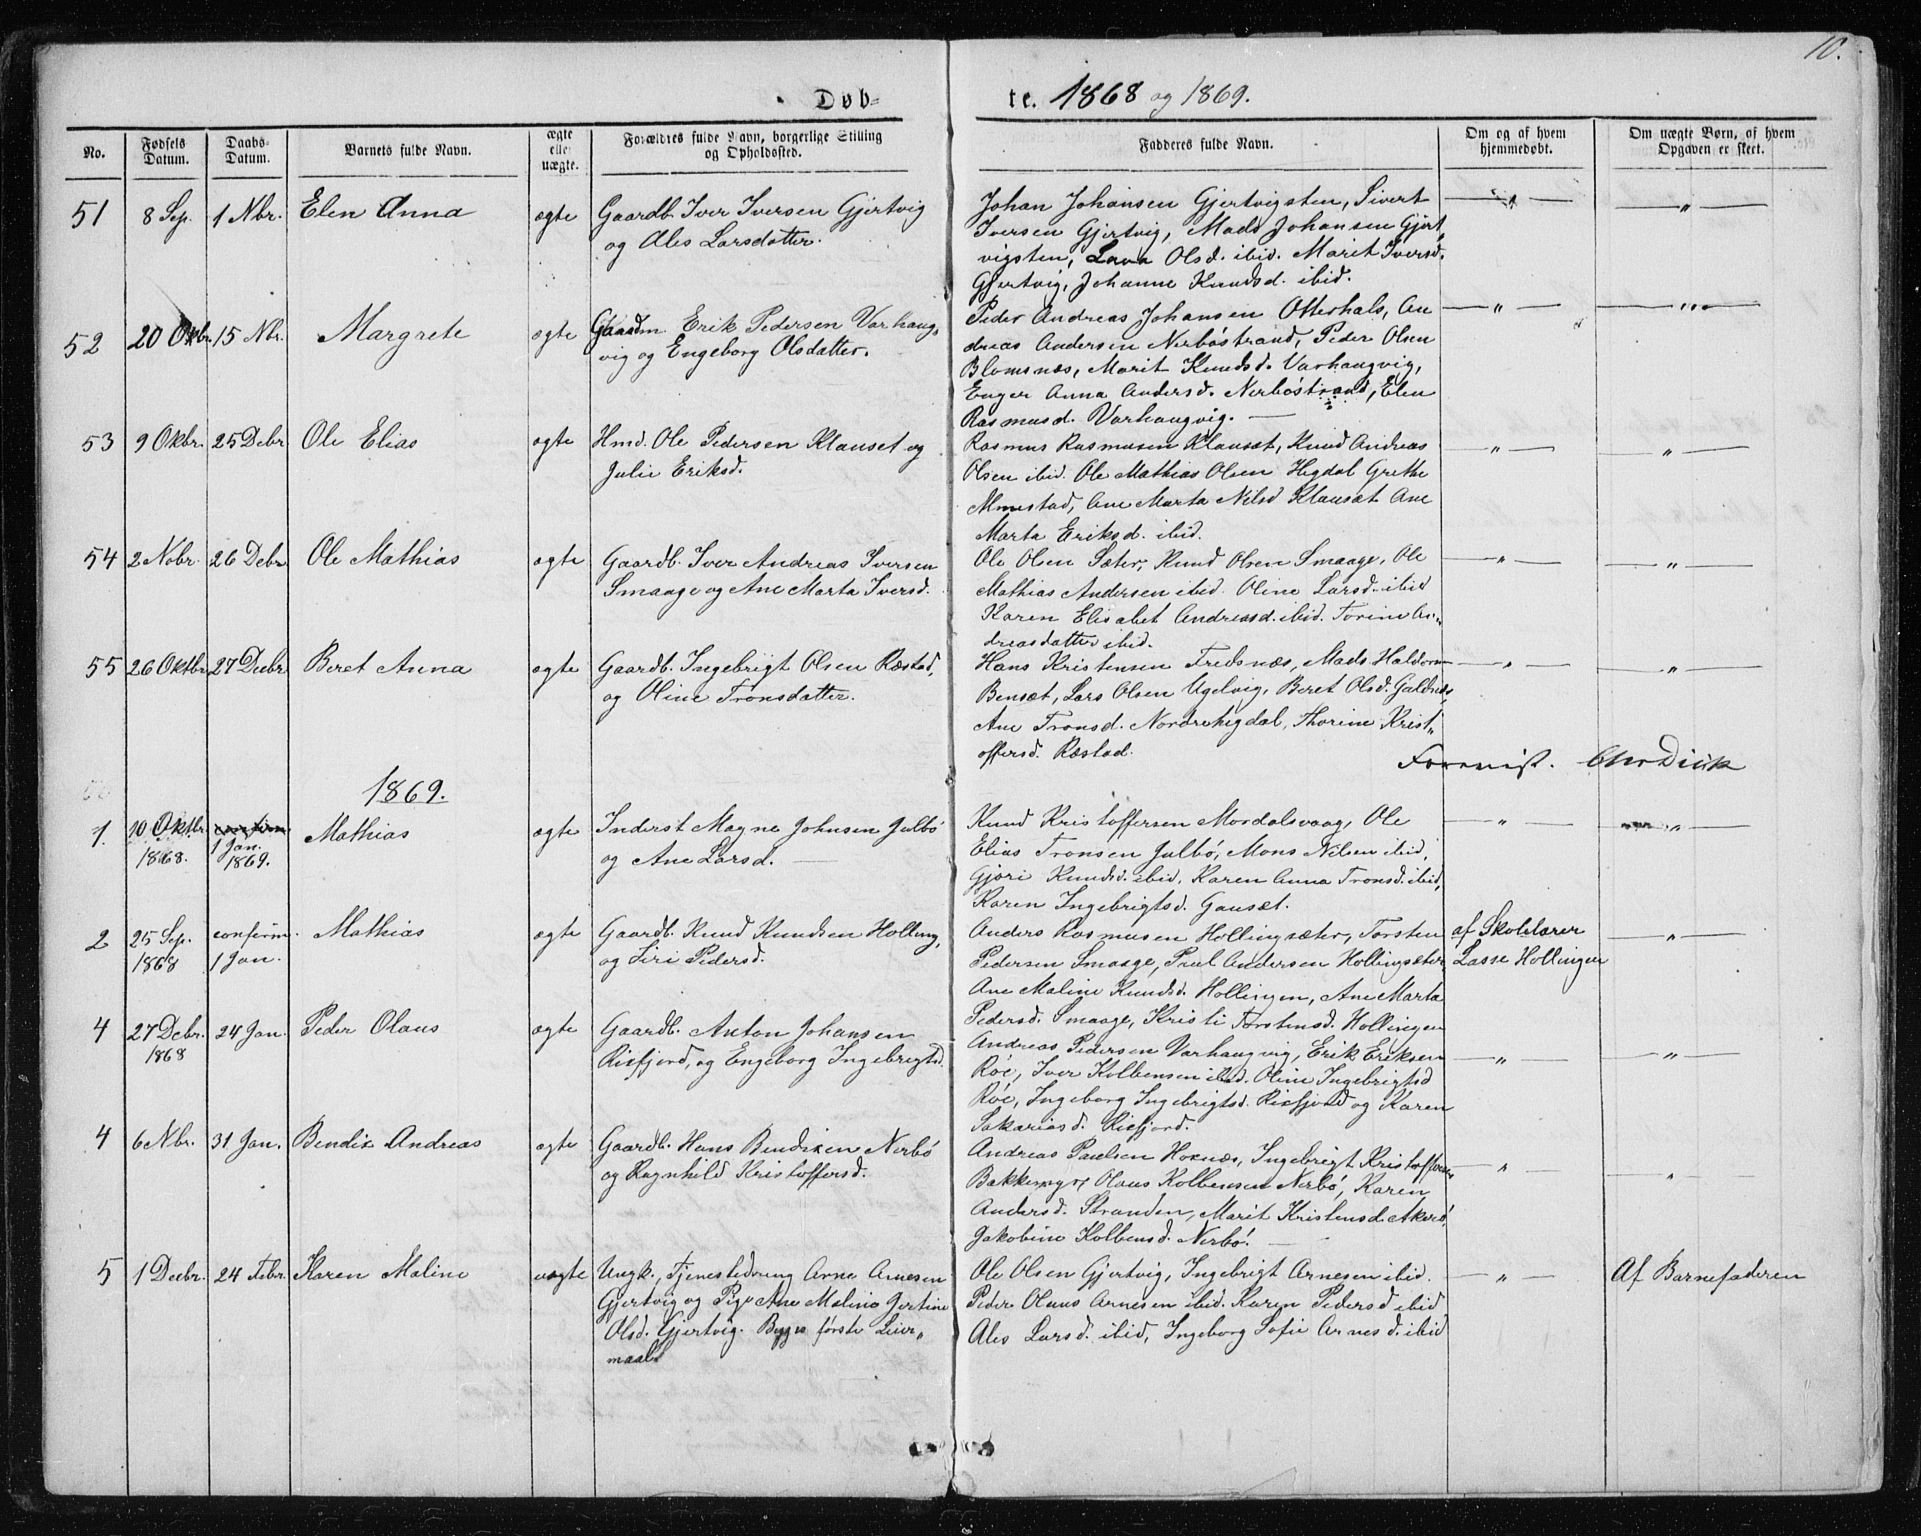 10.
Døb-
te. 1868 og 1869.
No.
Fødsels Datum.
Daabs-Datum.
Barnets fulde Navn.
ægte eller uægte.
Forældres fulde Navn, borgerlige Stilling
og Opholdssted.
Fadderes fulde Navn.
Om og af hvem
hjemmedøbt.
Om uægte Børn, af hvem
Opgaven er skeet.
51 8 Sep. 1 Nbr. Elen Anna ægte Gaardb. Iver Iversen Gjertvig
og Ales Larsdatter.
Johan Johansen Gjertvigsten, Sivert
Iversen Gjertvig, Mads Johansen Gjert„
vigsten, Lava Olsd. ibid. Marit Iversd.
Gjertvig, Johanne Knudsd. ibid.
— „ — — „ —
52 20 Okbr. 15 Nbr. Margrete ægte Gaardm. Erik Pedersen Varhaug„
vig og Engeborg Olsdatter.
Peder Andreas Johansen Otterhals, An
dreas Andersen Nerbøstrand, Peder Olsen
Blomsnæs, Marit Knudsd. Varhaugvig,
Enger Anna Andersd. Nerbøstrand, Elen
Rasmusd. Varhaugvig. —
— „ — — „ —
53 9 Okbr. 25 Debr. Ole Elias ægte Hmd. Ole Pedersen Klauset og
Julie Eriksd.
Rasmus Rasmusen Klausæt, Knud Andreas
Olsen ibid. Ole Mathias Olsen Hegdal Grethe
Mmestad, Ane Marta Nilsd Klausæt Ane
Marta Eriksd. ibid.
— „ — — „ —
54 2 Nobr. 26 Debr. Ole Mathias ægte Gaardb. Iver Andreas Iversen
Smaage og Ane Marta Iversd.
Ole Olsen Sæter, Knud Olsen Smaage, Ole
Mathias Andersen ibid. Oline Larsd. ibid
Karen Elisabet Andreasd. ibid. Torine An„
dreasdatter ibid.
— „ — — „ —
55 26 Oktbr. 27 Decbr. Beret Anna ægte Gaardb. Ingebrigt Olsen Ræstad,
og Oline Tronsdatter.
Hans Kristensen Fredsnæs, Mads Haldorsen
Bensæt, Lars Olsen Ugelvig, Beret Olsd. Galdnæs,
Ane Tronsd. Nordrehegdal, Thorine Krist„
offersd. Ræstad.
— „ — — „ —
Forevist. Chr Dick
1869.
1. 10 Oktbr. 1868. 1 Jan. 1869. Mathias ægte Inderst Magne Johnsen Julbø
og Ane Larsd. —
Knud Kristoffersen Mordalsvaag, Ole
Elias Tronsen Julbø, Mons Nilsen ibid,
Gjøri Knudsd. ibid, Karen Anna Tronsd. ibid,
Karen Ingebrigtsd. Gausæt.
— „ — — „ —
2 25 Sep. 1868 confirm. 1 Jan. Mathias ægte Gaardb. Knud Knudsen Holling,
og Siri Pedersd.
Anders Rasmusen Hollingsæter, Torsten
Pedersen Smaage, Paul Andersen Hollingsæter
Ane Maline Knudsd. Hollingen, Ane Marta
Pedersd. Smaage, Kristi Torstensd. Hollingen
af Skolelærer
Lasse Hollingen
— „ —
4 27 Debr. 1868 24 Jan. Peder Olaus ægte Gaardb. Anton Johansen
Risfjord, og Engeborg Ingebrigtsd.
Andreas Pedersen Varhaugvig, Erik Eriksen
Røe, Iver Kolbensen ibid. Oline Ingebrigtsd
Røe, Ingeborg Ingebrigtsd. Risfjord og Karen
Sakariasd. Risfjord.
— „ — — „ —
4 6 Nbr. 31 Jan. Bendix Andreas ægte Gaardb. Hans Bendixen Nerbø
og Ragnhild Kristoffersd.
Andreas Paulsen Hornæs, Ingebrigt Kristoffersen
Bakkemyr, Olaus Kolbensen Nerbø, Karen
Andersd. Stranden, Marit Kristensd. Akerø,
Jakobine Kolbensd. Nerbø. —
— „ — — „ —
5 1 Decbr. 24 Febr. Karen Maline uægte Ungk., Tjenestedreng Arne Arnesen
Gjertvig og Pige Ane Malina Jertine
Olsd. Gjertvig. Begges første Leier„
maal.
Ole Olsen Gjertvig, Ingebrigt Arnesen ibid.
Peder Olaus Arnesen ibid. Karen Pedersd ibid
Ales Larsd. ibid, Ingeborg Sofie Arnesd. ibid
— „ — Af Barnefaderen